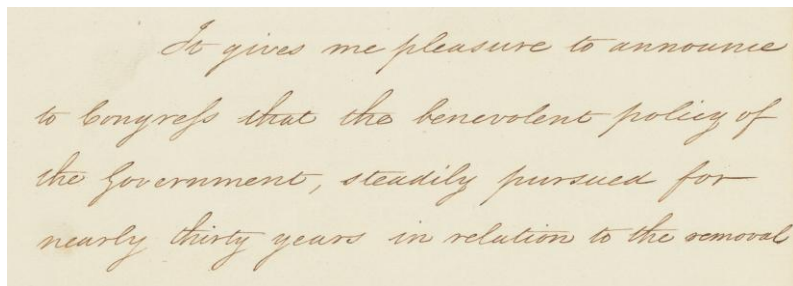 It gives me pleasure to announce
to Congress that the benevolent policy of
the Government, steadily pursued for
nearly thirty years in relation to the removal